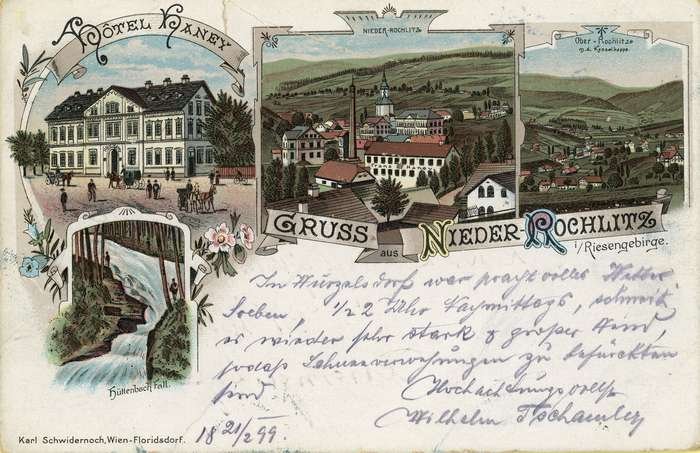 HÔTEL HANEY
NIEDER-ROCHLITZ
Ober-Rochlitz
m.d. Kesselkoppe.
GRUSS
aus
NIEDER-ROCHLITZ
i/Riesengebirge.
Hüttenbachfall.
In Wurzelsdorf war prachtvolles Wetter
Soeben, 1/2 2 Uhr Nachmittags, schneit
es wieder sehr stark & großer Wind,
sodaß Schneeverwehungen zu befürchten
sind
Hochachtungsvollst
Wilhelm
18 21/2 99.
Karl Schwidernoch, Wien-Floridsdorf.